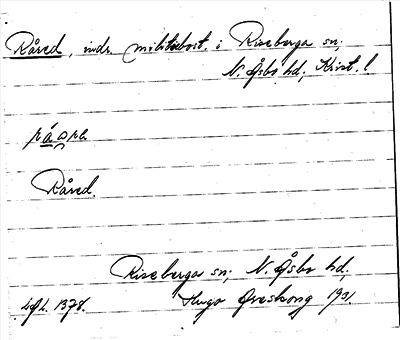 Råred, indr. militiebost. i Riseberga sn,
N. Åsbo hd, Krist. l
Råred.
Riseberga sn, N. Åsbo hd,
Lgh. 1378. Hugo Areskoug 1931.